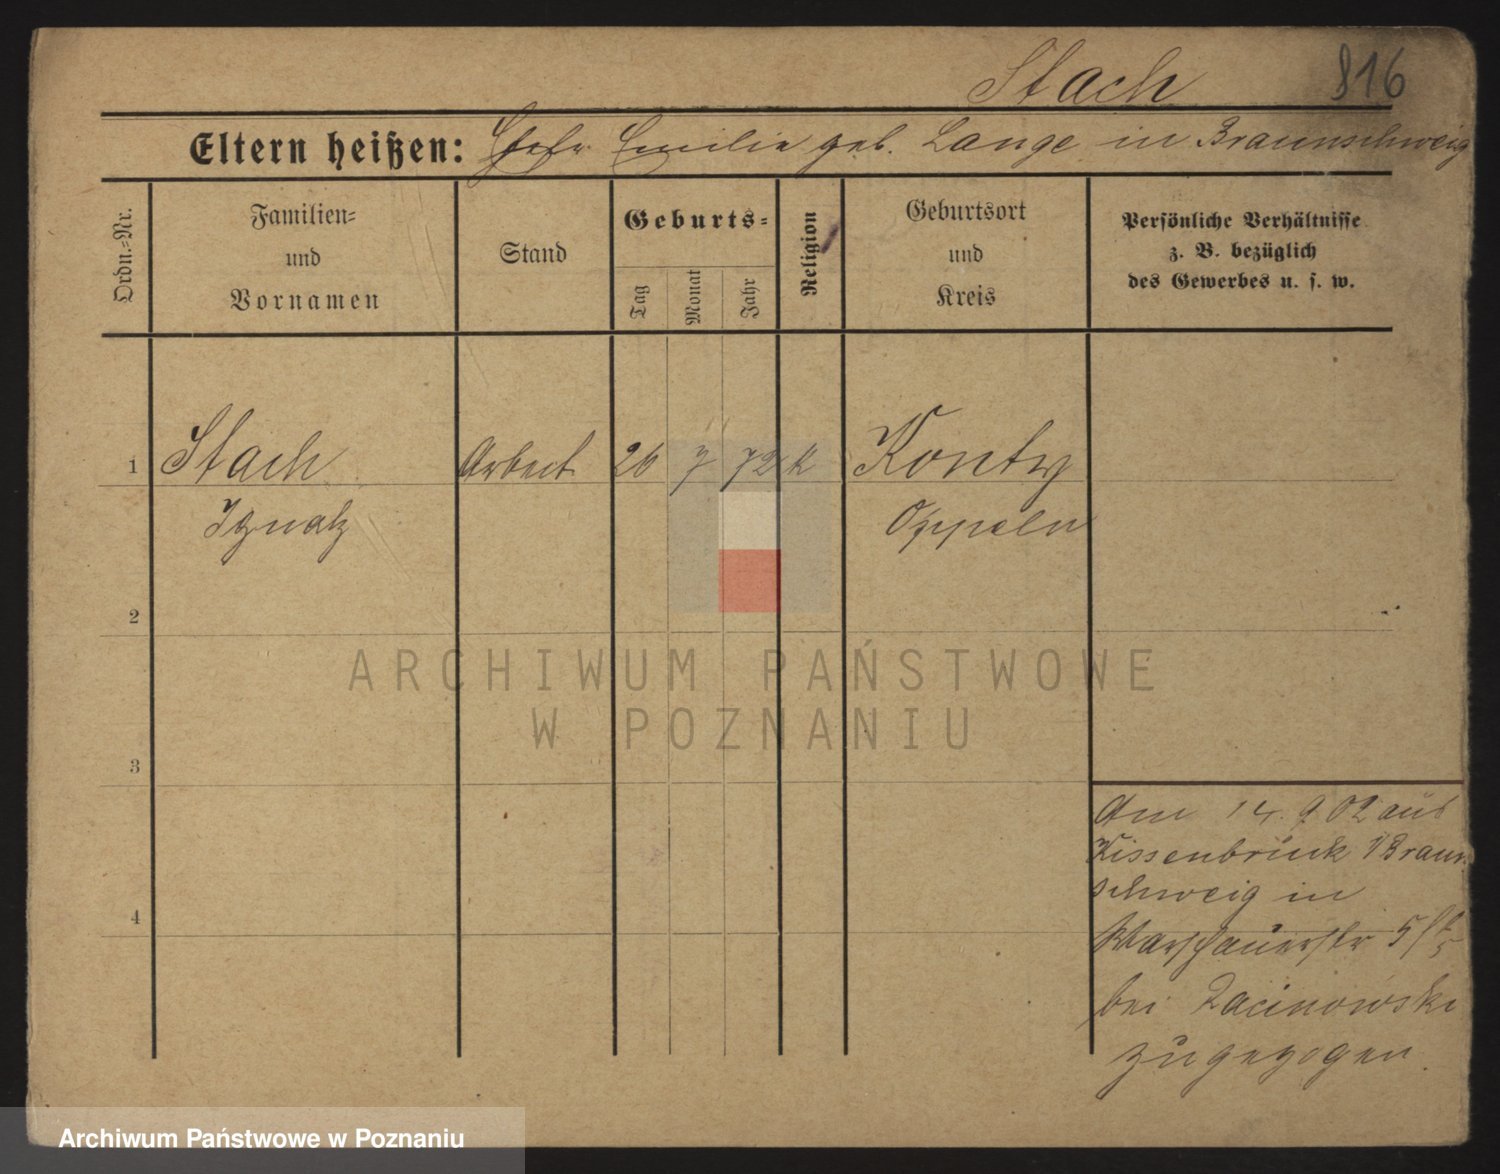 Stach 816
Eltern heißen: Ehefr Emilie geb. Lange in Braunschweig
Ordn.-Nr.
Familien-
und
Vornamen
Stand
Geburts-
Tag
Monat
Jahr
Religion
Geburtsort
und
Kreis
Persönliche Verhältnisse
z. B. bezüglich
des Gewerbes u. s. w.
1 Stach Arbeit. 26 7 72 k Konty
Ignatz Oppeln
2
ARCHIWUM PAŃSTWOWE
W POZNANIU
3
Am 14. 9. 02 aus
Kissenbrück i/Braun-
schweig in
4
Warschauerstr 5
bei Racinowski
zugezogen.
Archiwum Państwowe w Poznaniu